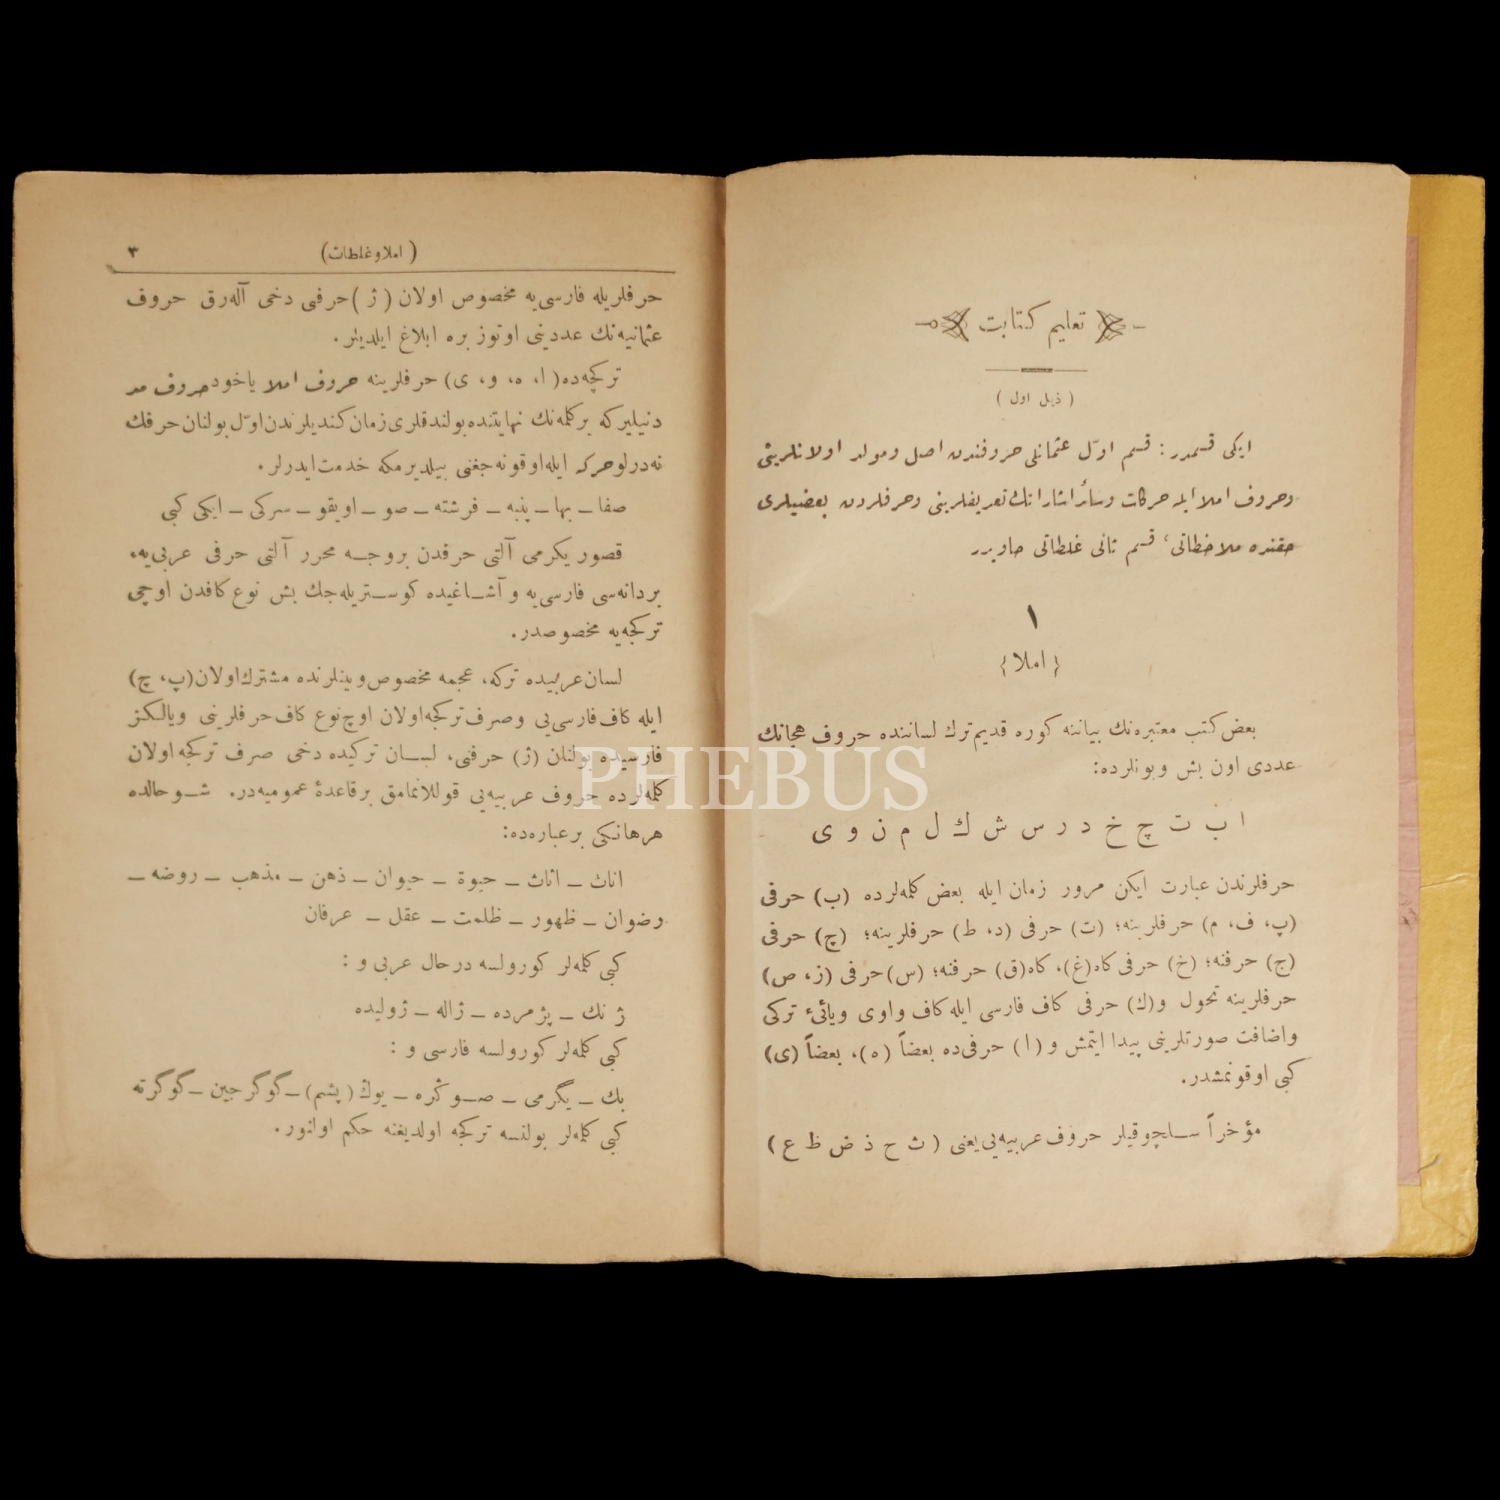 تعليم كتابت
( ذيل اول )
ايكى قسمدر: قسم اوّل عثمانلى حروفندن اصل ومولد اولانلرينى
وحروف املا ايله حركات وسائر اشاراتك تعريفلرينى وحرفلردن بعضيلرى
حقنده ملاحظاتى، قسم ثانى غلطاتى حاويدر
١
{ املا }
بعض كتب معتبره‌نك بياننه كوره قديم ترك لساننده حروف هجانك
عددى اون بش وبونلرده:
ا ب ت چ خ د ر س ش ك ل م ن و ى
حرفلرندن عبارت ايكن مرور زمان ايله بعض كلمه‌لرده (ب) حرفى
(پ، ف، م) حرفلرينه؛ (ت) حرفى (د، ط) حرفلرينه؛ (چ) حرفى
(ج) حرفنه؛ (خ) حرفى كاه (غ)، كاه (ق) حرفنه؛ (س) حرفى (ز، ص)
حرفلرينه تحول و(ك) حرفى كاف فارسى ايله كاف واوى ويائىء تركى
واضافت صورتلرينى پيدا ايتمش و (ا) حرفى‌ده بعضاً (ه)، بعضاً (ى)
كبى اوقونمشدر.
مؤخراً ساچوقيلر حروف عربيه‌يى يعنى ( ث ح ذ ض ظ ع )
( املا و غلطات)
٣
حرفلريله فارسى‌يه مخصوص اولان ( ژ ) حرفى دخى آله‌رق حروف
عثمانيه‌نك عددينى اوتوز بره ابلاغ ايلديلر.
تركچه‌ده (ا، ه، و، ى) حرفلرينه حروف املا ياخود حروف مد
دنيليركه بر كلمه‌نك نهايتنده بولندقلرى زمان كنديلرندن اوّل بولنان حرفك
نه‌درلو حركه ايله اوقونه‌جغنى بيلديرمكه خدمت ايدرلر.
صفا ـ بها ـ پنبه ـ فرشته ـ صو ـ اويقو ـ سركى ـ ايكى كبى
قصور يكرمى آلتى حرفدن بر وجه محرر آلتى حرفى عربى‌يه،
بر دانه‌سى فارسى‌يه و آشاغيده كوستريله‌جك بش نوع كافدن اوچى
تركجه‌يه مخصوصدر.
لسان عربيده تركه، عجمه مخصوص وبينلرنده مشترك اولان (پ، چ)
ايله كاف فارسى‌يى وصرف تركجه اولان اوچ نوع كاف حرفلرينى ويالكز
فارسيده بولنان (ژ) حرفنى، لسان تركيده دخى صرف تركجه اولان
كلمه‌لرده حروف عربيه‌يى قوللانمامق بر قاعدهٔ عموميه‌در. شو حالده
هرهانكى بر عباره‌ده:
اناث ـ اثاث ـ حيوة ـ حيوان ـ ذهن ـ مذهب ـ روضه ـ
رضوان ـ ظهور ـ ظلمت ـ عقل ـ عرفان
كبى كلمه‌لر كورولسه درحال عربى و :
ژنك ـ پژمرده ـ ژاله ـ ژوليده
كبى كلمه‌لر كورولسه فارسى و :
بك ـ يگرمى ـ صوڭره ـ يوڭ (پشم) ـ گوگرجين ـ گوگرته
كبى كلمه‌لر بولنسه تركجه اولديغنه حكم اولنور.
PHEBUS